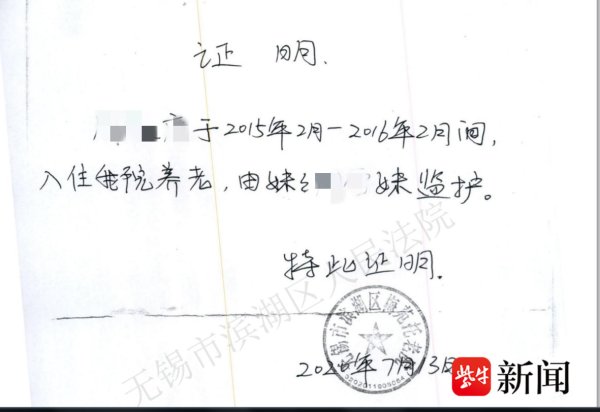 证 明.
于2015年2月-2016年2月间,
入住我院养老,由妹 妹监护。
特此证明.
无锡市滨湖区人民法院
无锡市滨湖区梅苑花
年7月13日
紫牛新闻